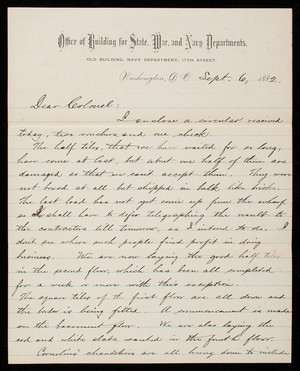 Office of Building for State, War, and Navy Departments,
OLD BUILDING, NAVY DEPARTMENT, 17TH STREET.
Washington, D. C. Sept. 6, 1882.
Dear Colonel:
I enclose a circular received
today, two vouchers and one check.
The half tiles, that we have waited for so long,
have come at last, but about one half of them are
damaged so that we can't accept them. They were
not boxed at all but shipped in bulk like brick.
The last load has not yet come up from the wharf
so I shall have to defer telegraphing the result to
the contractors till tomorrow, as I intend to do. I
don't see where such people find profit in doing
business. We are now laying the good half tiles
in the second floor, which has been all completed
for a week or more with this exception.
The square tiles of the first floor are all down and
the border is being fitted. A commencement is made on
the basement floor. We are also laying the
red and white slabs wanted in the fourth floor.
Cornelius' chandeliers are all hung down to include